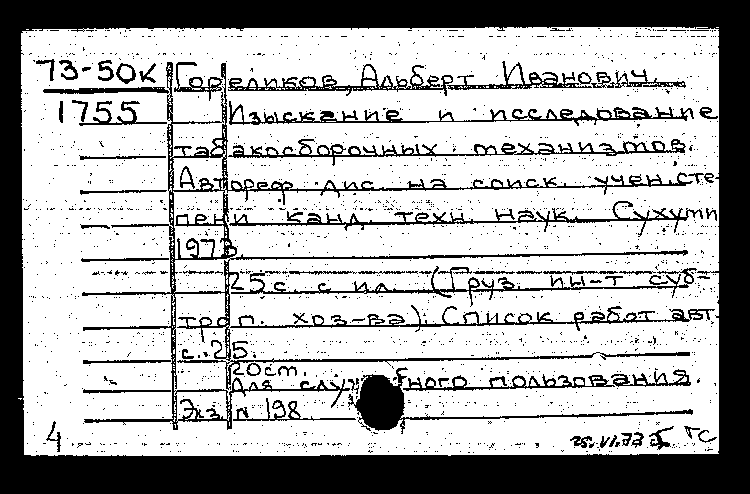 73-50к Гореликов, Альберт Иванович.
1755 Изыскание и исследование
табакосборочных механизмов.
Автореф. дис. на соиск. учен. сте-
пени канд. техн. наук. Сухуми
1973.
25 с. с ил. (Груз. ин-т суб-
троп. хоз-ва). Список работ авт.
с. 25.
20 ст.
Для служебного пользования.
Экз. N 198
4 25.VI.73